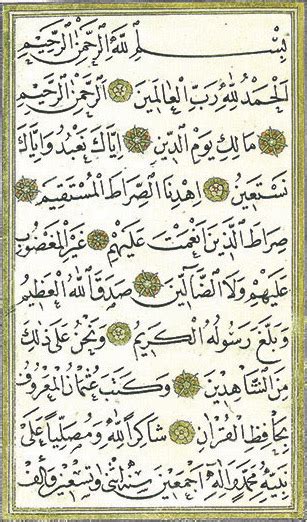 بِسْمِ اللَّهِ الرَّحْمَنِ الرَّحِيمِ
الْحَمْدُ لِلَّهِ رَبِّ الْعَالَمِينَ ۝ الرَّحْمَنِ الرَّحِيمِ
۝ مَالِكِ يَوْمِ الدِّينِ ۝ إِيَّاكَ نَعْبُدُ وَإِيَّاكَ
نَسْتَعِينُ ۝ اِهْدِنَا الصِّرَاطَ الْمُسْتَقِيمَ ۝
صِرَاطَ الَّذِينَ أَنْعَمْتَ عَلَيْهِمْ ۝ غَيْرِ الْمَغْضُوبِ
عَلَيْهِمْ وَلَا الضَّالِّينَ ۝ صَدَقَ اللَّهُ الْعَظِيمُ
وَبَلَّغَ رَسُولُهُ الْكَرِيمُ ۝ وَنَحْنُ عَلَى ذَلِكَ
مِنَ الشَّاهِدِينَ ۝ وَكَتَبَ عُثْمَانُ الْمَعْرُوفُ
بِحَافِظِ الْقُرْآنِ ۝ شَاكِرًا لِلَّهِ وَمُصَلِّيًا عَلَى
نَبِيِّهِ مُحَمَّدٍ وَآلِهِ أَجْمَعِينَ سنة اثنى وتسعين وألف